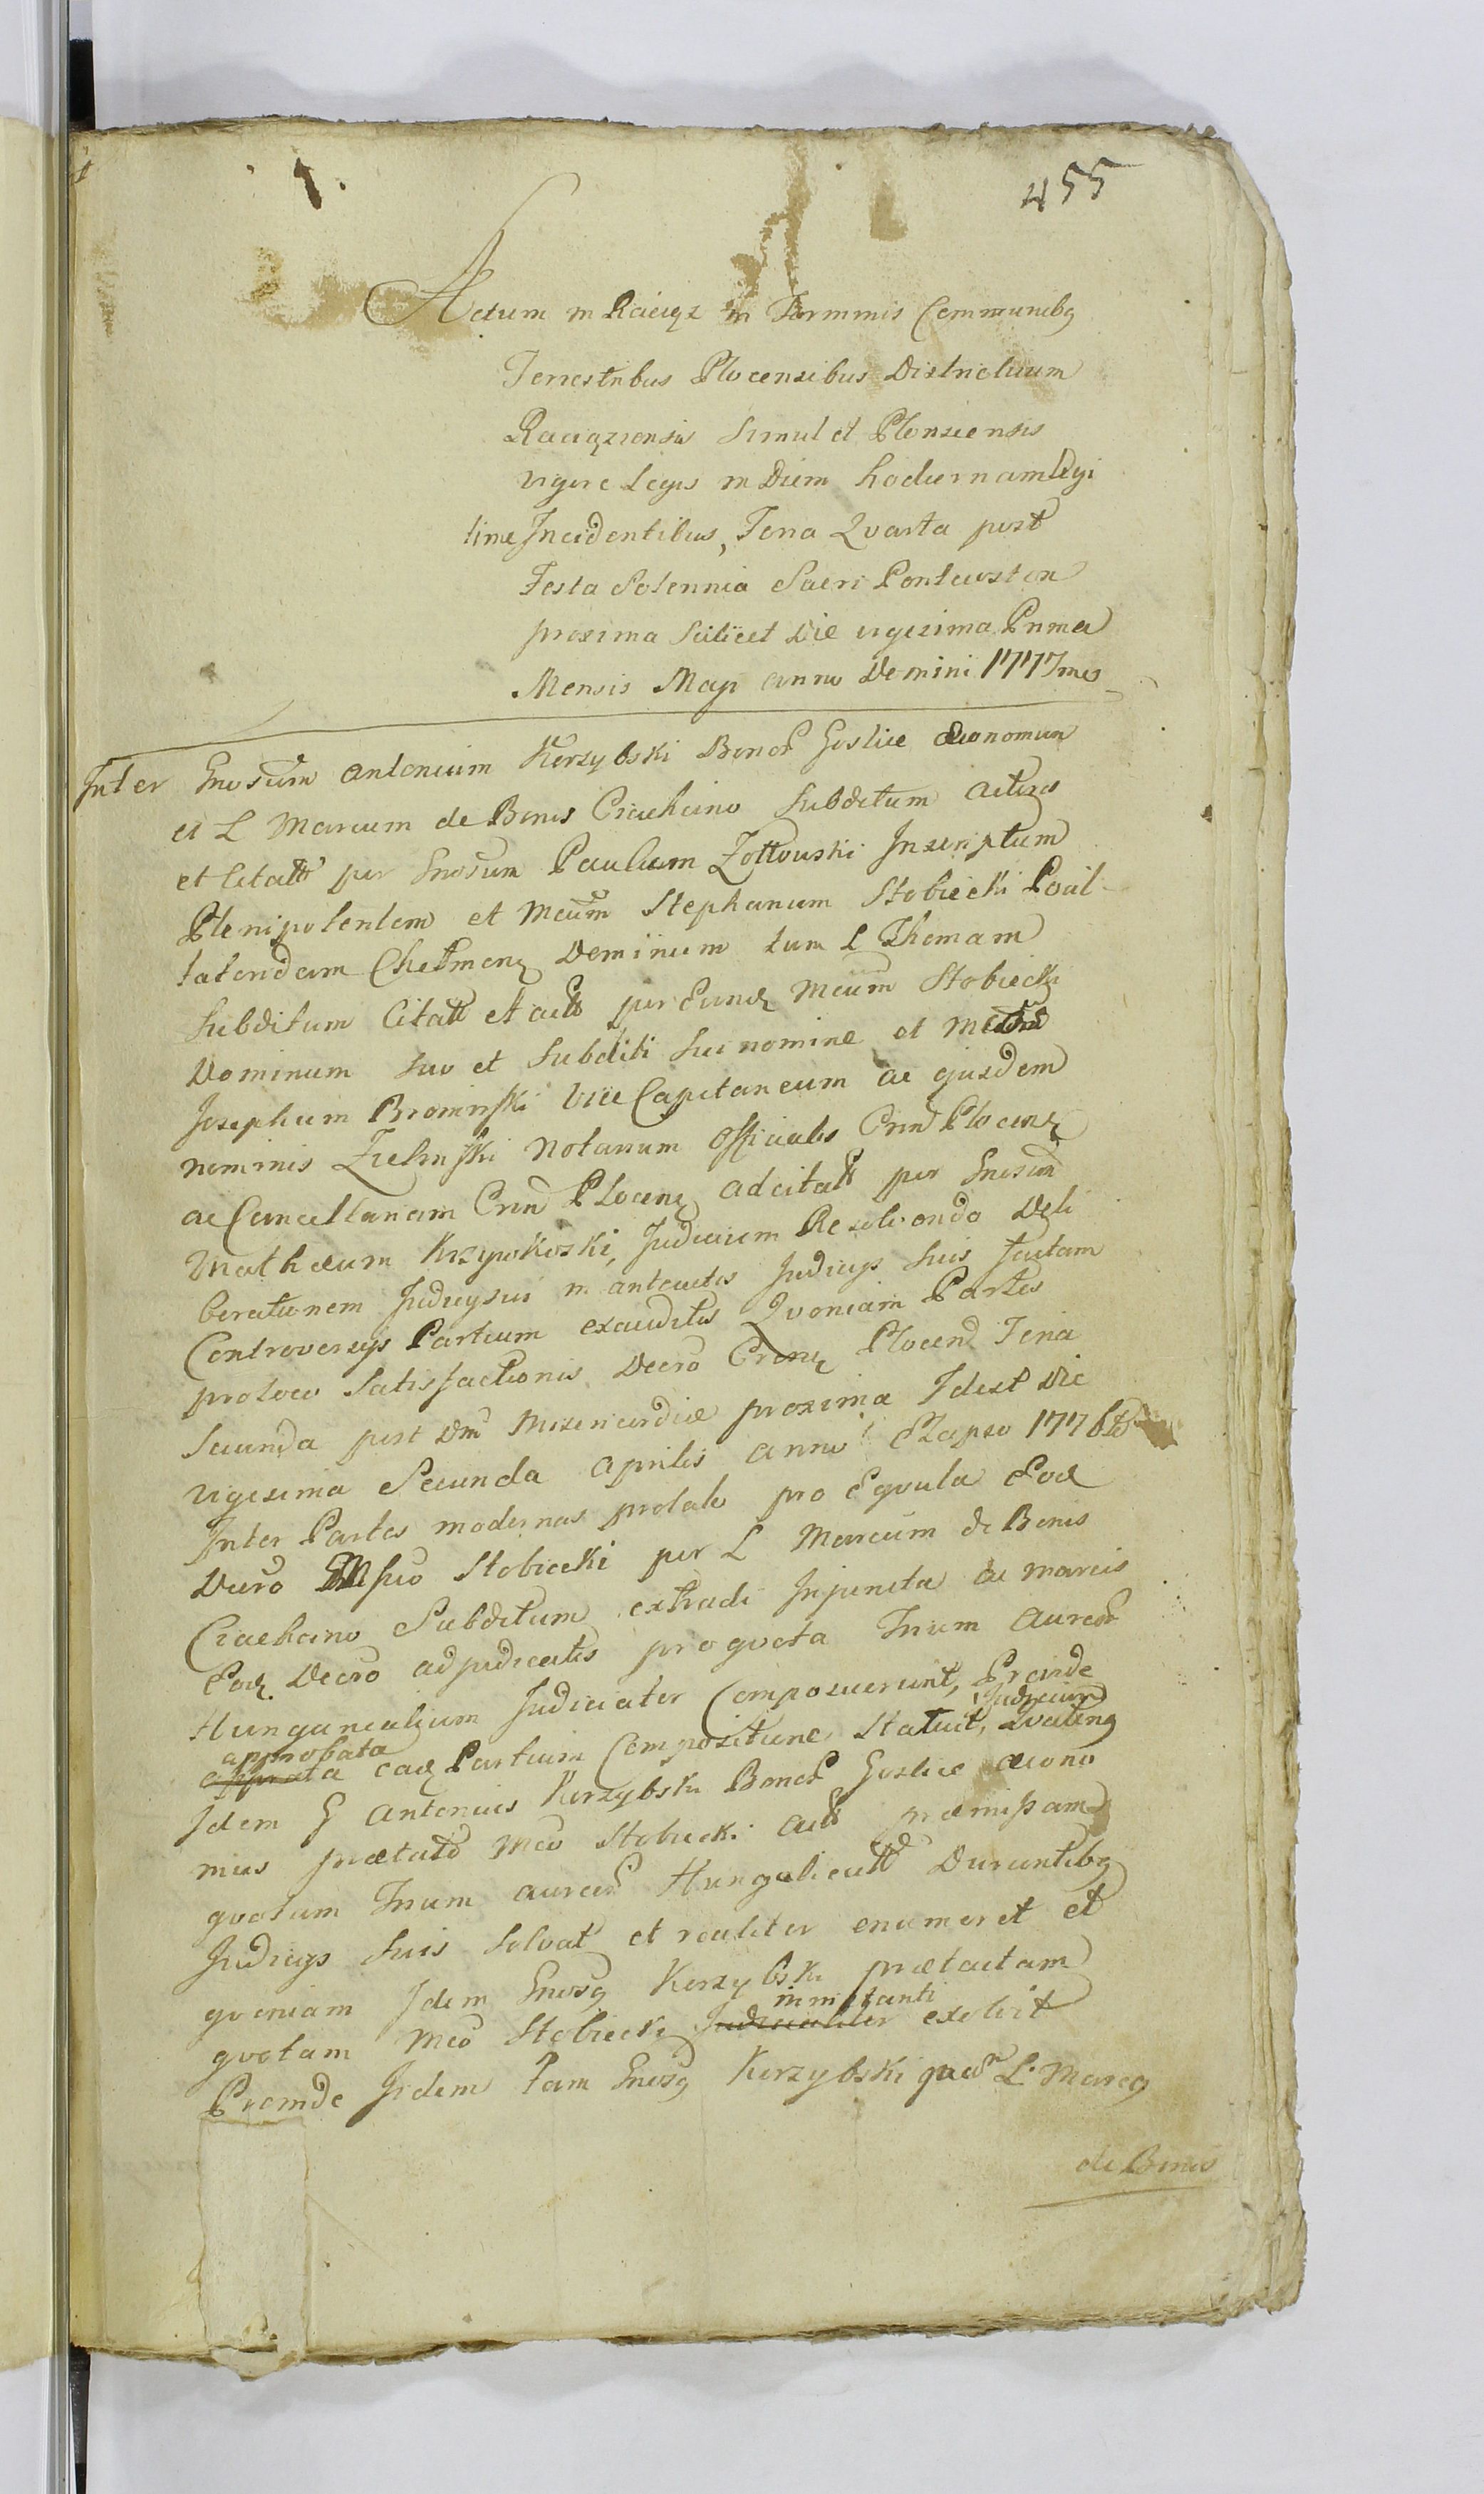 455
Actum in Raciąz in Terminis Communibq
Terrestribus Plocensibus Districtuum
Raciąziensis Simul et Plonsiensis
vigore Legis in Diem hodiernam Legi
time Incidentibus, Feria Qvarta post
Festa Solennia Sacri Pentecosten
proxima Scilicet Die vigesima Prima
Mensis Maji anno Domini 1777mo
Inter Gnosum Antonium Korzybski Bonor Goslice Œconomum
et L Marcum de Bonis Ciachcino Subditum Actores
et Citatt per Gnosum Paulum Zoltowski Inscriptum
Plenipotentem et Mcum Stephanum Stobiecki
Chelmen Dominum tum L Thomam
Subditum Citatt et actt per Eund Mcum Stobiecki
Dominum suo et Subditi sui nomine et
Josephum Brominski Vice Capitaneum ac ejusdem
nominis Zielinski Notarium Officiales Plocens
ac Cancellariam Plocens adcitatt per Gnosum
Mathæum Krzywkoski, Judicium Resolvendo Deli
berationem Judicysui in anteactis Judicijs suis factam
Controversijs Partium exauditis Qvoniam Partes
pro loco Satisfactionis Decro Plocens Feria
Secunda post Misericordiæ proxima Idest Die
vigesima Secunda Aprilis anno Elapso 1776to
Inter Partes modernas prolato pro Eqvula Eod
Decro Mfico Stobiecki per L Marcum de Bonis
Ciachcino Subditum extradi Injuncta ac marcis
Eod Decro adjudicatis pro qvota Trium Aureor
Hungaricalium Judicialiter Composuerunt, Proinde
approbata Judicium
ead Partium Compositione Statuit, Qvateng
Idem G Antonius Korzybski Bonor Goslice œcono
mus prætacto Mco Stobiecki actt præmissam
qvotam Trium aureor Hungalicatt Durantibq
Judicijs suis solvat et realiter enumeret et
qvoniam Idem Gnosq Korzybski prætactam
inmitanti
qvotam Mco Stobiecki Judicialiter exolvit
Proinde Iidem tam Gnosq Korzybski L Marcq
de Bonis